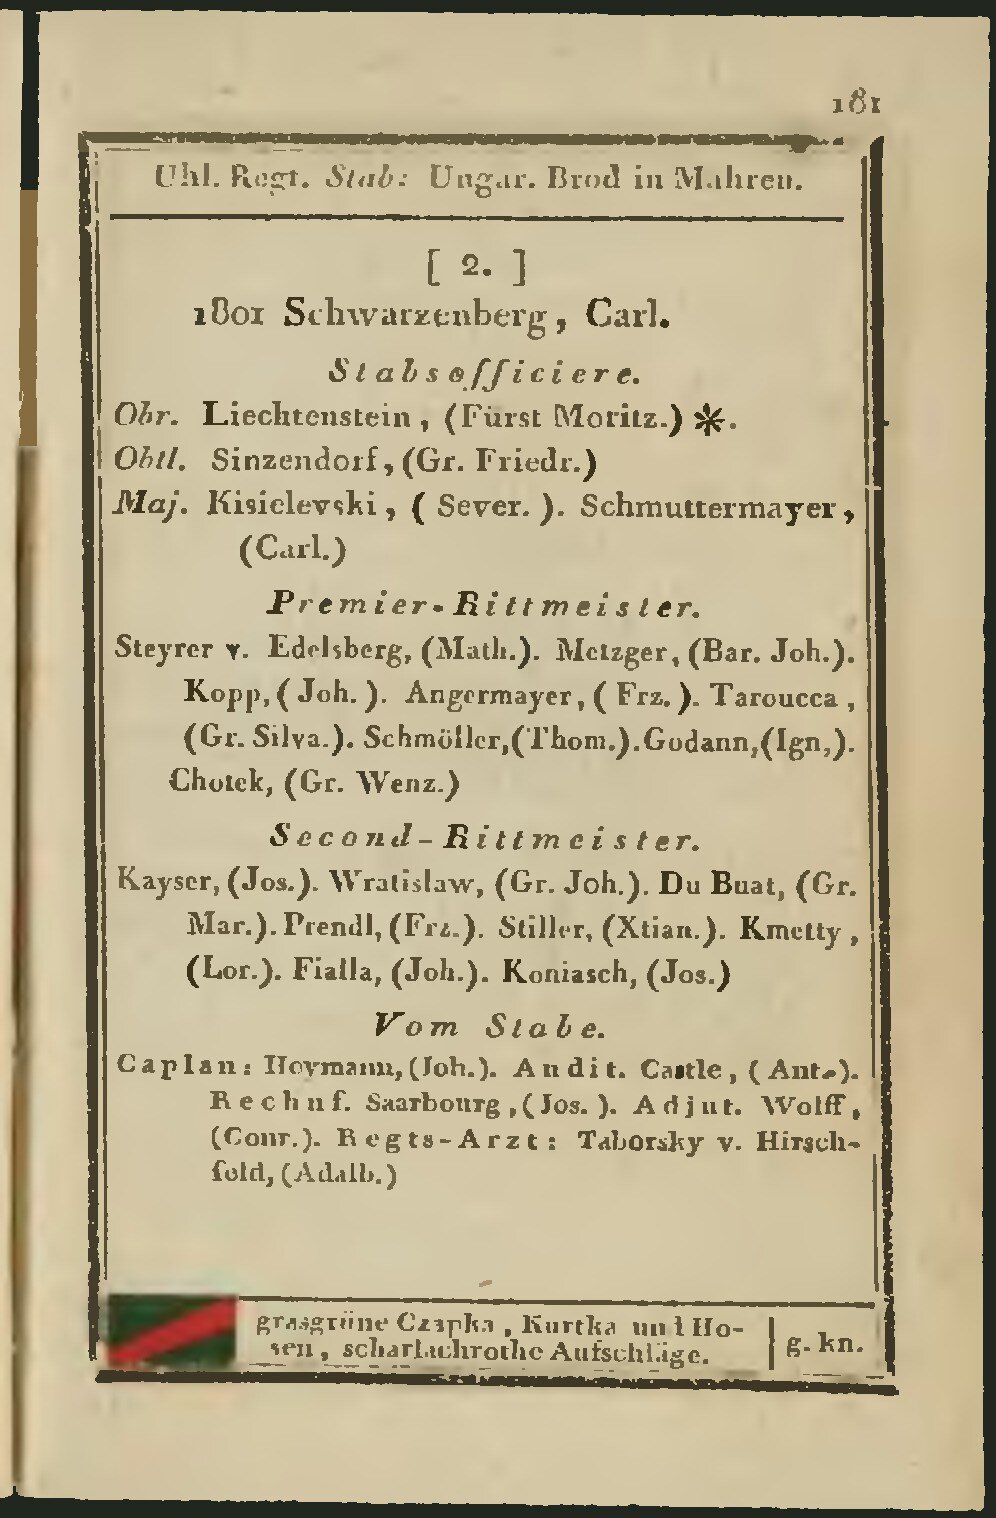 181
Uhl. Regt. Stab: Ungar. Brod in Mahren.
[ 2. ]
1801 Schwarzenberg, Carl.
Stabsofficiere.
Obr. Liechtenstein, (Fürst Moritz.) ✻.
Obtl. Sinzendorf, (Gr. Friedr.)
Maj. Kisielevski, ( Sever. ). Schmuttermayer,
(Carl.)
Premier-Rittmeister.
Steyrer v. Edelsberg, (Math.). Metzger, (Bar. Joh.).
Kopp, ( Joh. ). Angermayer, ( Frz. ). Taroucca,
(Gr. Silva.). Schmöller, (Thom.). Godann, (Ign,).
Chotek, (Gr. Wenz.)
Second-Rittmeister.
Kayser, (Jos.). Wratislaw, (Gr. Joh.). Du Buat, (Gr.
Mar.). Prendl, (Frz.). Stiller, (Xtian.). Kmetty,
(Lor.). Fialla, (Joh.). Koniasch, (Jos.)
Vom Stabe.
Caplan: Hoymann, (Joh.). Audit. Castle, ( Ant.).
Rechnf. Saarbourg, ( Jos. ). Adjut. Wolff,
(Conr.). Regts-Arzt: Taborsky v. Hirsch-
feld, (Adalb.)
grasgrüne Czapka, Kurtka und Ho-
sen, scharlachrothe Aufschläge.
g. kn.